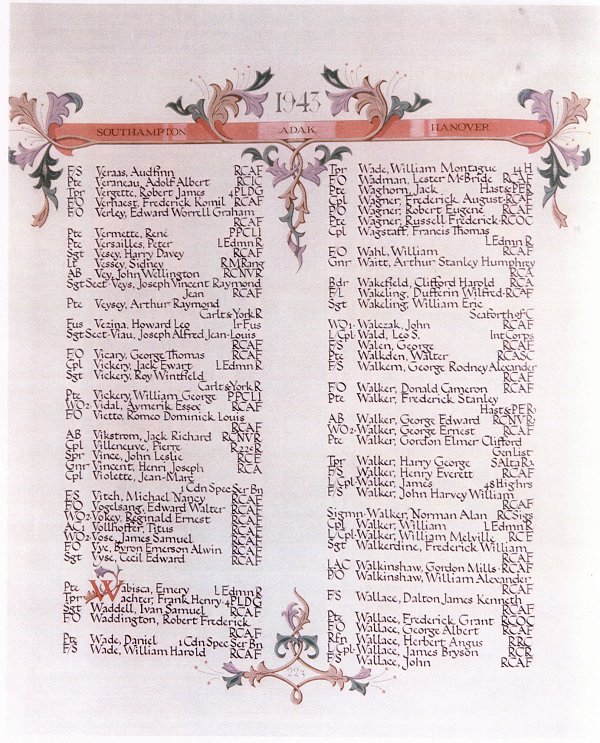 1943
SOUTHAMPTON ADAK HANOVER
F/S Veraas, Audfinn RCAF
Pte Veraneau, Adolf Albert RCIC
Tpr Vergette, Robert James 4 PLDG
F/O Verhaest, Fredrick Komil RCAF
F/O Verley, Edward Worrell Graham
RCAF
Pte Vermette, René PPCLI
Pte Versailles, Peter L Edmn R
Sgt Vesey, Harry Davey RCAF
Lt Vessey, Sidney RM Rang
AB Vey, John Wellington RCNVR
Sgt Sect-Veys, Joseph Vincent Raymond
Jean RCAF
Pte Veysey, Arthur Raymond
Carlt & York R
Fus Vezina, Howard Leo Ir Fus
Sgt Sect-Viau, Joseph Alfred Jean-Louis
RCAF
F/O Vicary, George Thomas RCAF
Cpl Vickery, Jack Ewart L Edmn R
Sgt Vickery, Roy Wintfield
Carlt & York R
Pte Vickery, William George PPCLI
WO2-Vidal, Aymerik Essex RCAF
F/O Vietto, Romeo Dominick Louis
RCAF
AB Vikstrom, Jack Richard RCNVR
Cpl Villeneuve, Pierre R 22e R
Spr Vince, John Leslie RCE
Gnr Vincent, Henri Joseph RCA
Cpl Violette, Jean-Marc
1 Cdn Spec Ser Bn
F/S Vitch, Michael Nancy RCAF
F/O Vogelsang, Edward Walter RCAF
WO2-Vokey, Reginald Ernest RCAF
AC1 Vollhoffer, Titus RCAF
WO2-Vose, James Samuel RCAF
F/O Vye, Byron Emerson Alwin RCAF
Sgt Vyse, Cecil Edward RCAF
Pte Wabisca, Emery L Edmn R
Tpr Wachter, Frank Henry-4 PLDG
Sgt Waddell, Ivan Samuel RCAF
F/O Waddington, Robert Frederick
RCAF
Pte Wade, Daniel 1 Cdn Spec Ser Bn
F/S Wade, William Harold RCAF
Tpr Wade, William Montague 14 H
F/O Wadman, Lester McBride RCAF
Pte Waghorn, Jack Hast & PER
Cpl Wagner, Frederick August-RCAF
P/O Wagner, Robert Eugene RCAF
Pte Wagner, Russell Frederick-RCOC
Cpl Wagstaff, Francis Thomas
L Edmn R
F/O Wahl, William RCAF
Gnr Waitt, Arthur Stanley Humphrey
RCA
Bdr Wakefield, Clifford Harold RCA
F/L Wakeling, Dufferin Wilfred-RCAF
Sgt Wakeling, William Eric
Seaforth H of C
WO1-Walczak, John RCAF
L/Cpl-Wald, Leo S. Int Corps
F/S Walen, George RCAF
Pte Walkden, Walter RCASC
F/S Walkem, George Rodney Alexander
RCAF
F/O Walker, Donald Cameron RCAF
Pte Walker, Frederick Stanley
Hast & PER
AB Walker, George Edward RCNVR
WO2-Walker, George Ernest RCAF
Pte Walker, Gordon Elmer Clifford
Gen List
Tpr Walker, Harry George S Alta R
F/S Walker, Henry Everett RCAF
L/Cpl-Walker, James 48 Highrs
F/S Walker, John Harvey William
RCAF
Sigmn-Walker, Norman Alan RC Sigs
Cpl Walker, William L Edmn R
L/Cpl-Walker, William Melville RCE
Sgt Walkerdine, Frederick William
RCAF
LAC Walkinshaw, Gordon Mills-RCAF
P/O Walkinshaw, William Alexander
RCAF
F/S Wallace, Dalton James Kenneth
RCAF
Pte Wallace, Frederick Grant RCOC
F/O Wallace, George Albert RCAF
Rfn Wallace, Herbert Angus RRC
L/Cpl-Wallace, James Bryson RCR
F/S Wallace, John RCAF
223